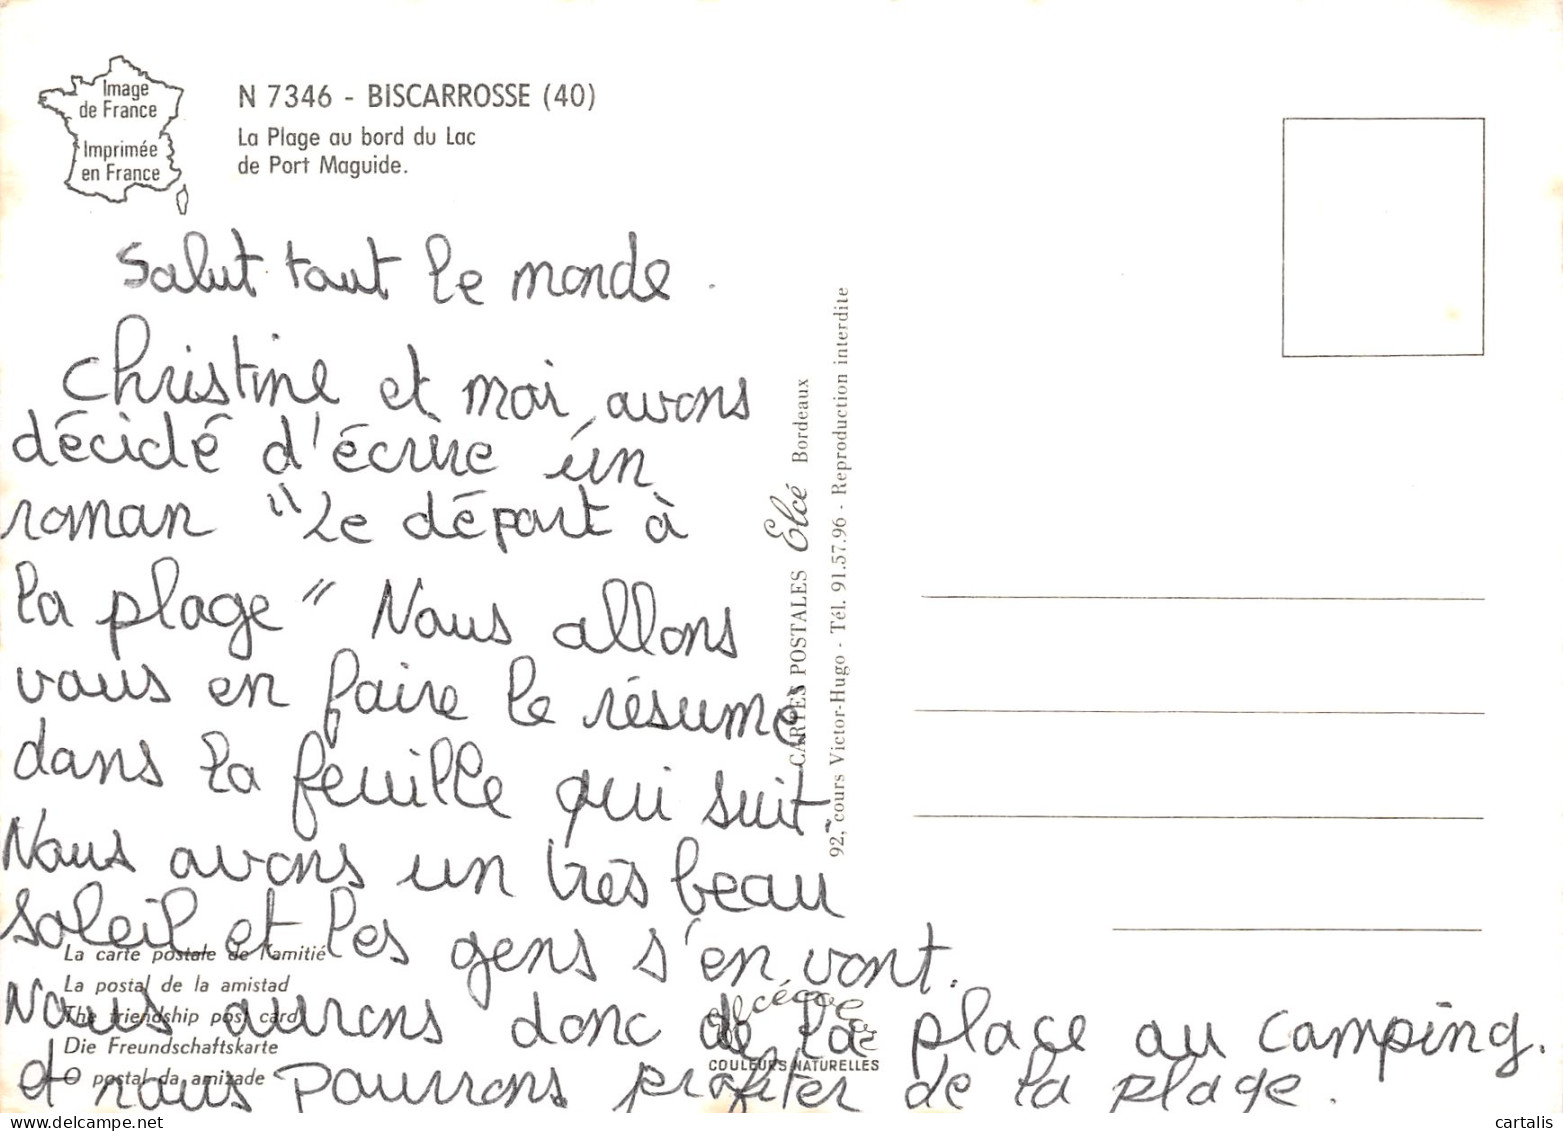 Image
de France
Imprimée
en France
N 7346 - BISCARROSSE (40)
La Plage au bord du Lac
de Port Maguide.
Salut tout le monde.
Christine et moi avons
décidé d'écrire un
roman "Le départ à
la plage" Nous allons
vous en faire le résumé
dans la feuille qui suit.
Nous avons un très beau
soleil et les gens s'en vont.
Nous aurons donc de la place au camping.
et nous pourrons profiter de la plage.
La carte postale de l'amitié
La postal de la amistad
The friendship post card
Die Freundschaftskarte
O postal da amizade
CARTES POSTALES Elcé Bordeaux
92, cours Victor-Hugo - Tél. 91.57.96 - Reproduction interdite
COULEURS NATURELLES
cartalis